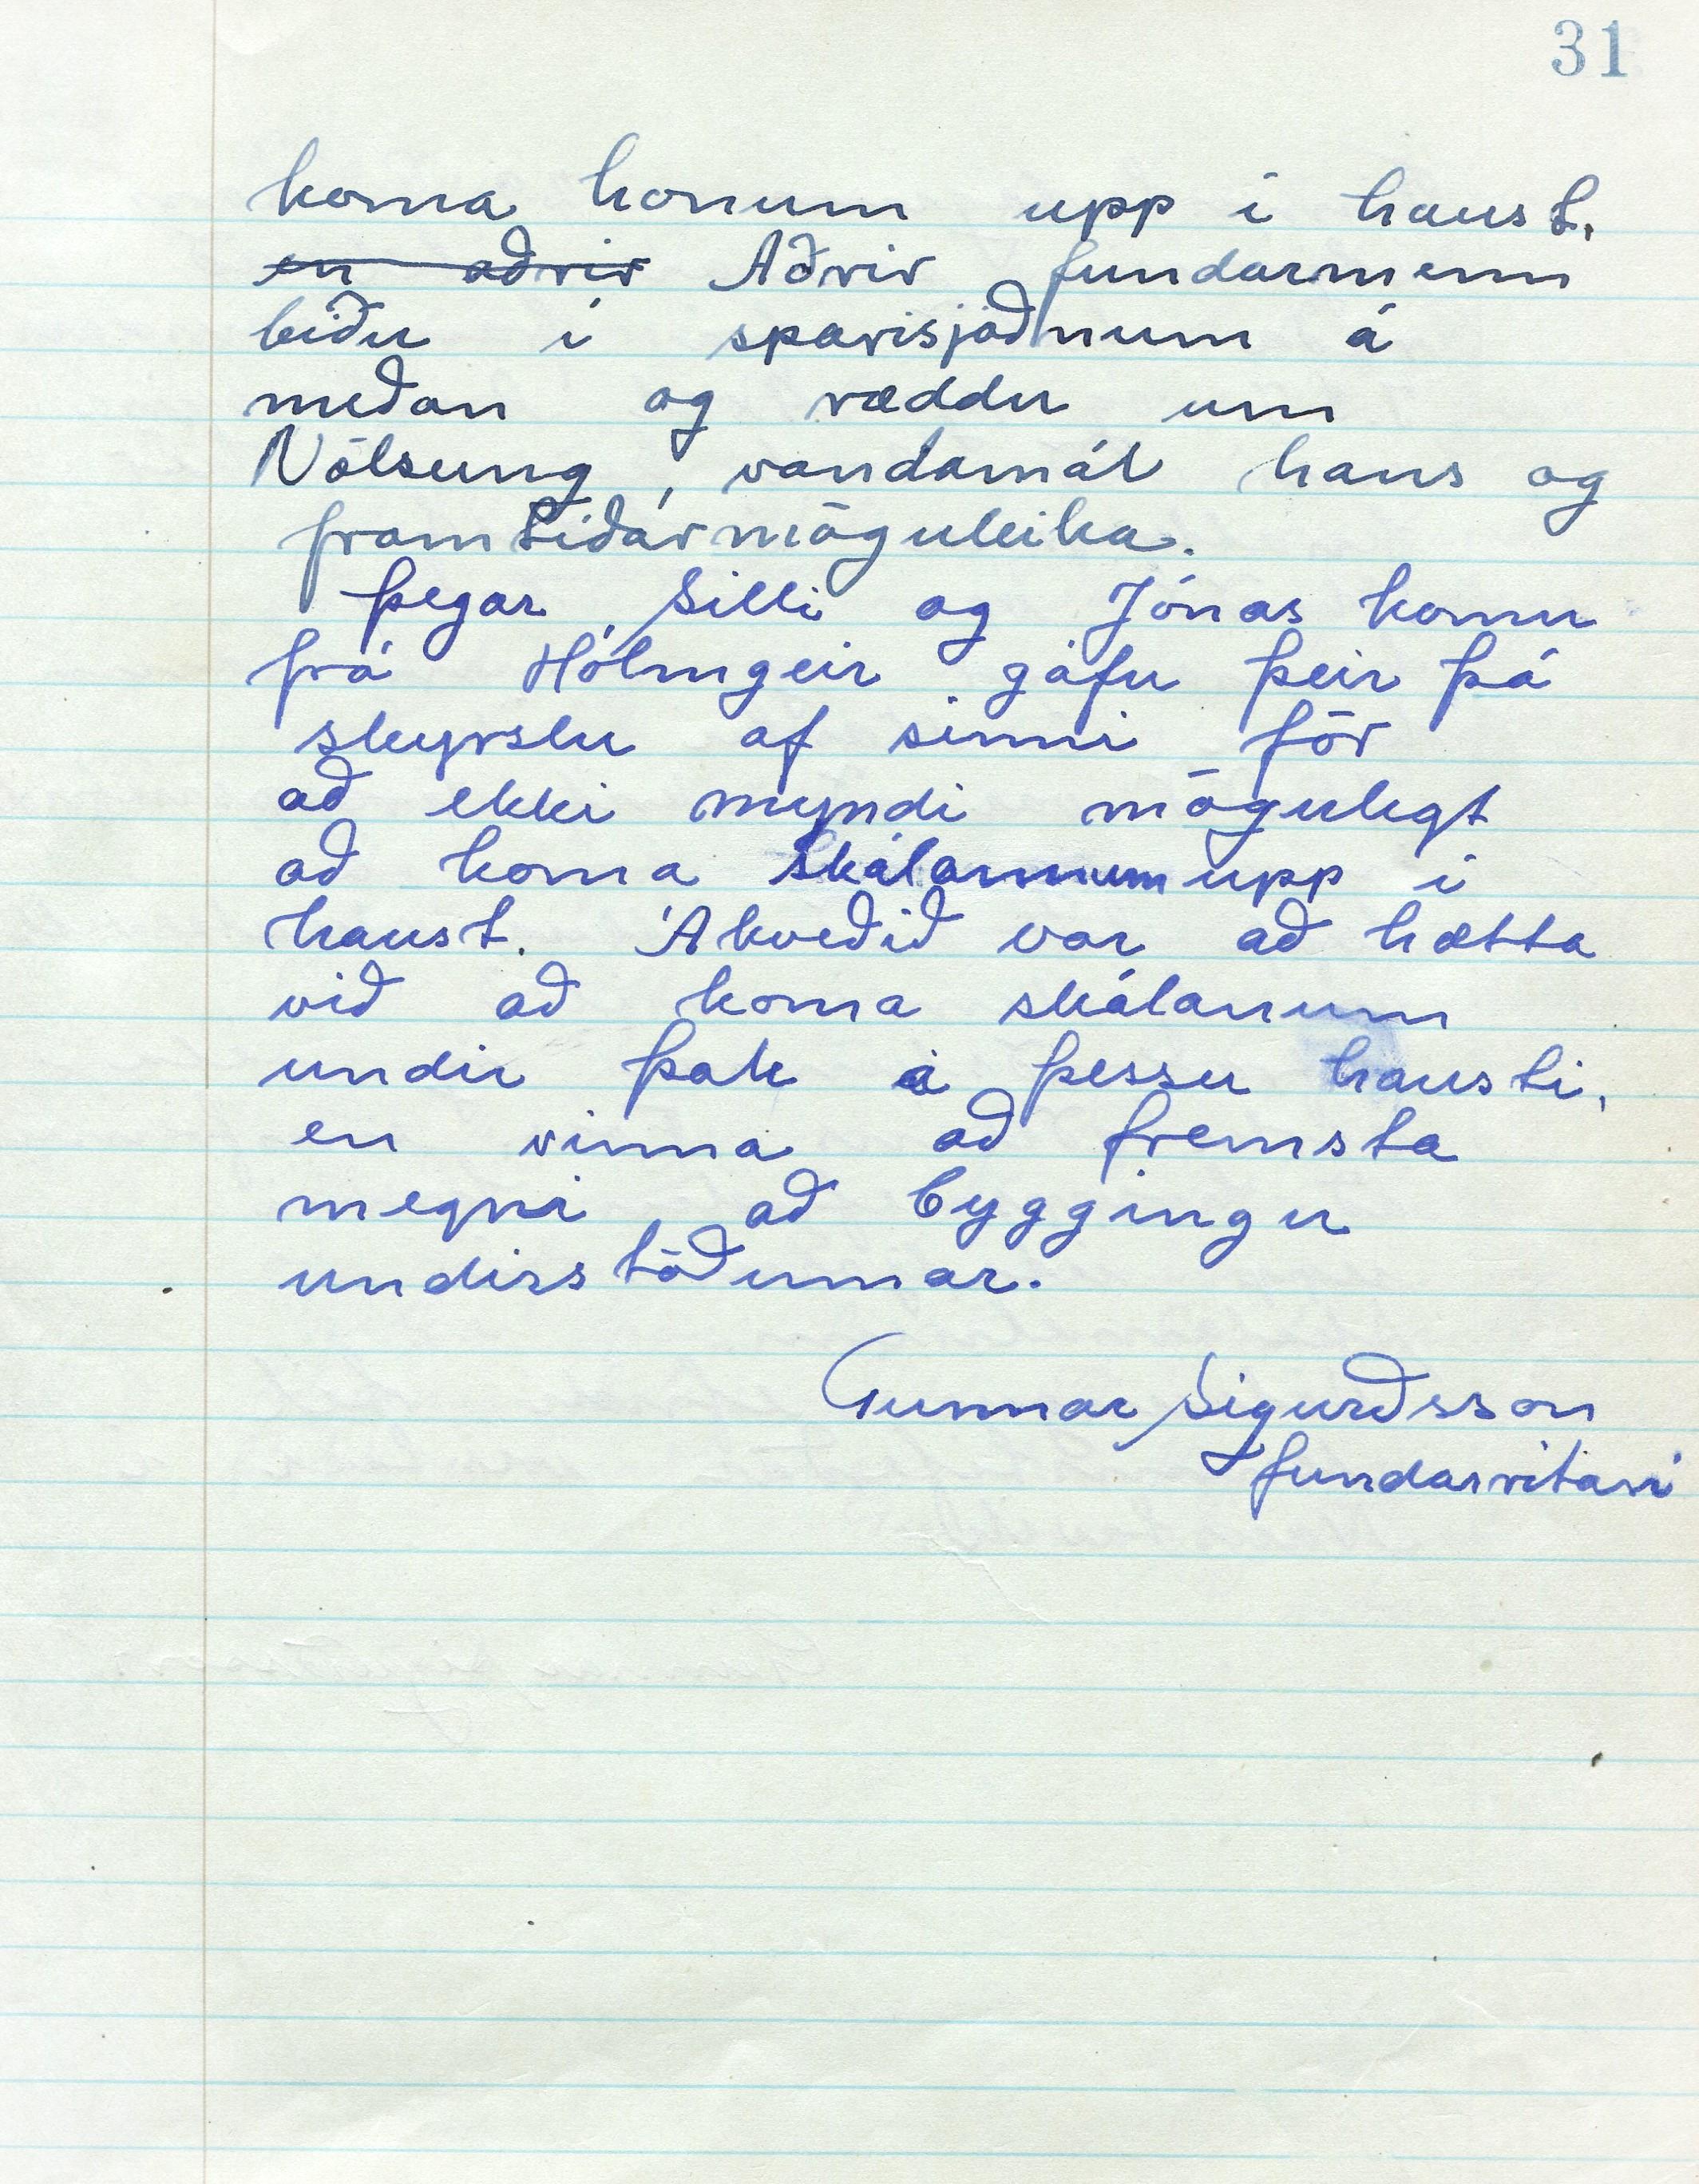 31
koma honum upp í haust,
en aðrir Aðrir fundarmenn
biðu í sparisjóðnum á
meðan og ræddu um
Völsung, vandamál hans og
framtíðarmöguleika.
Þegar Silli og Jónas komu
frá Hólmgeir gáfu þeir þá
skyrslu af sinni för
að ekki myndi mögulegt
að koma skálanum upp í
haust. Ákveðið var að hætta
við að koma skálanum
undir þak á þessu hausti,
en vinna að fremsta
megni að byggingu
undirstöðunnar.
Gunnar Sigurðsson
fundarritari